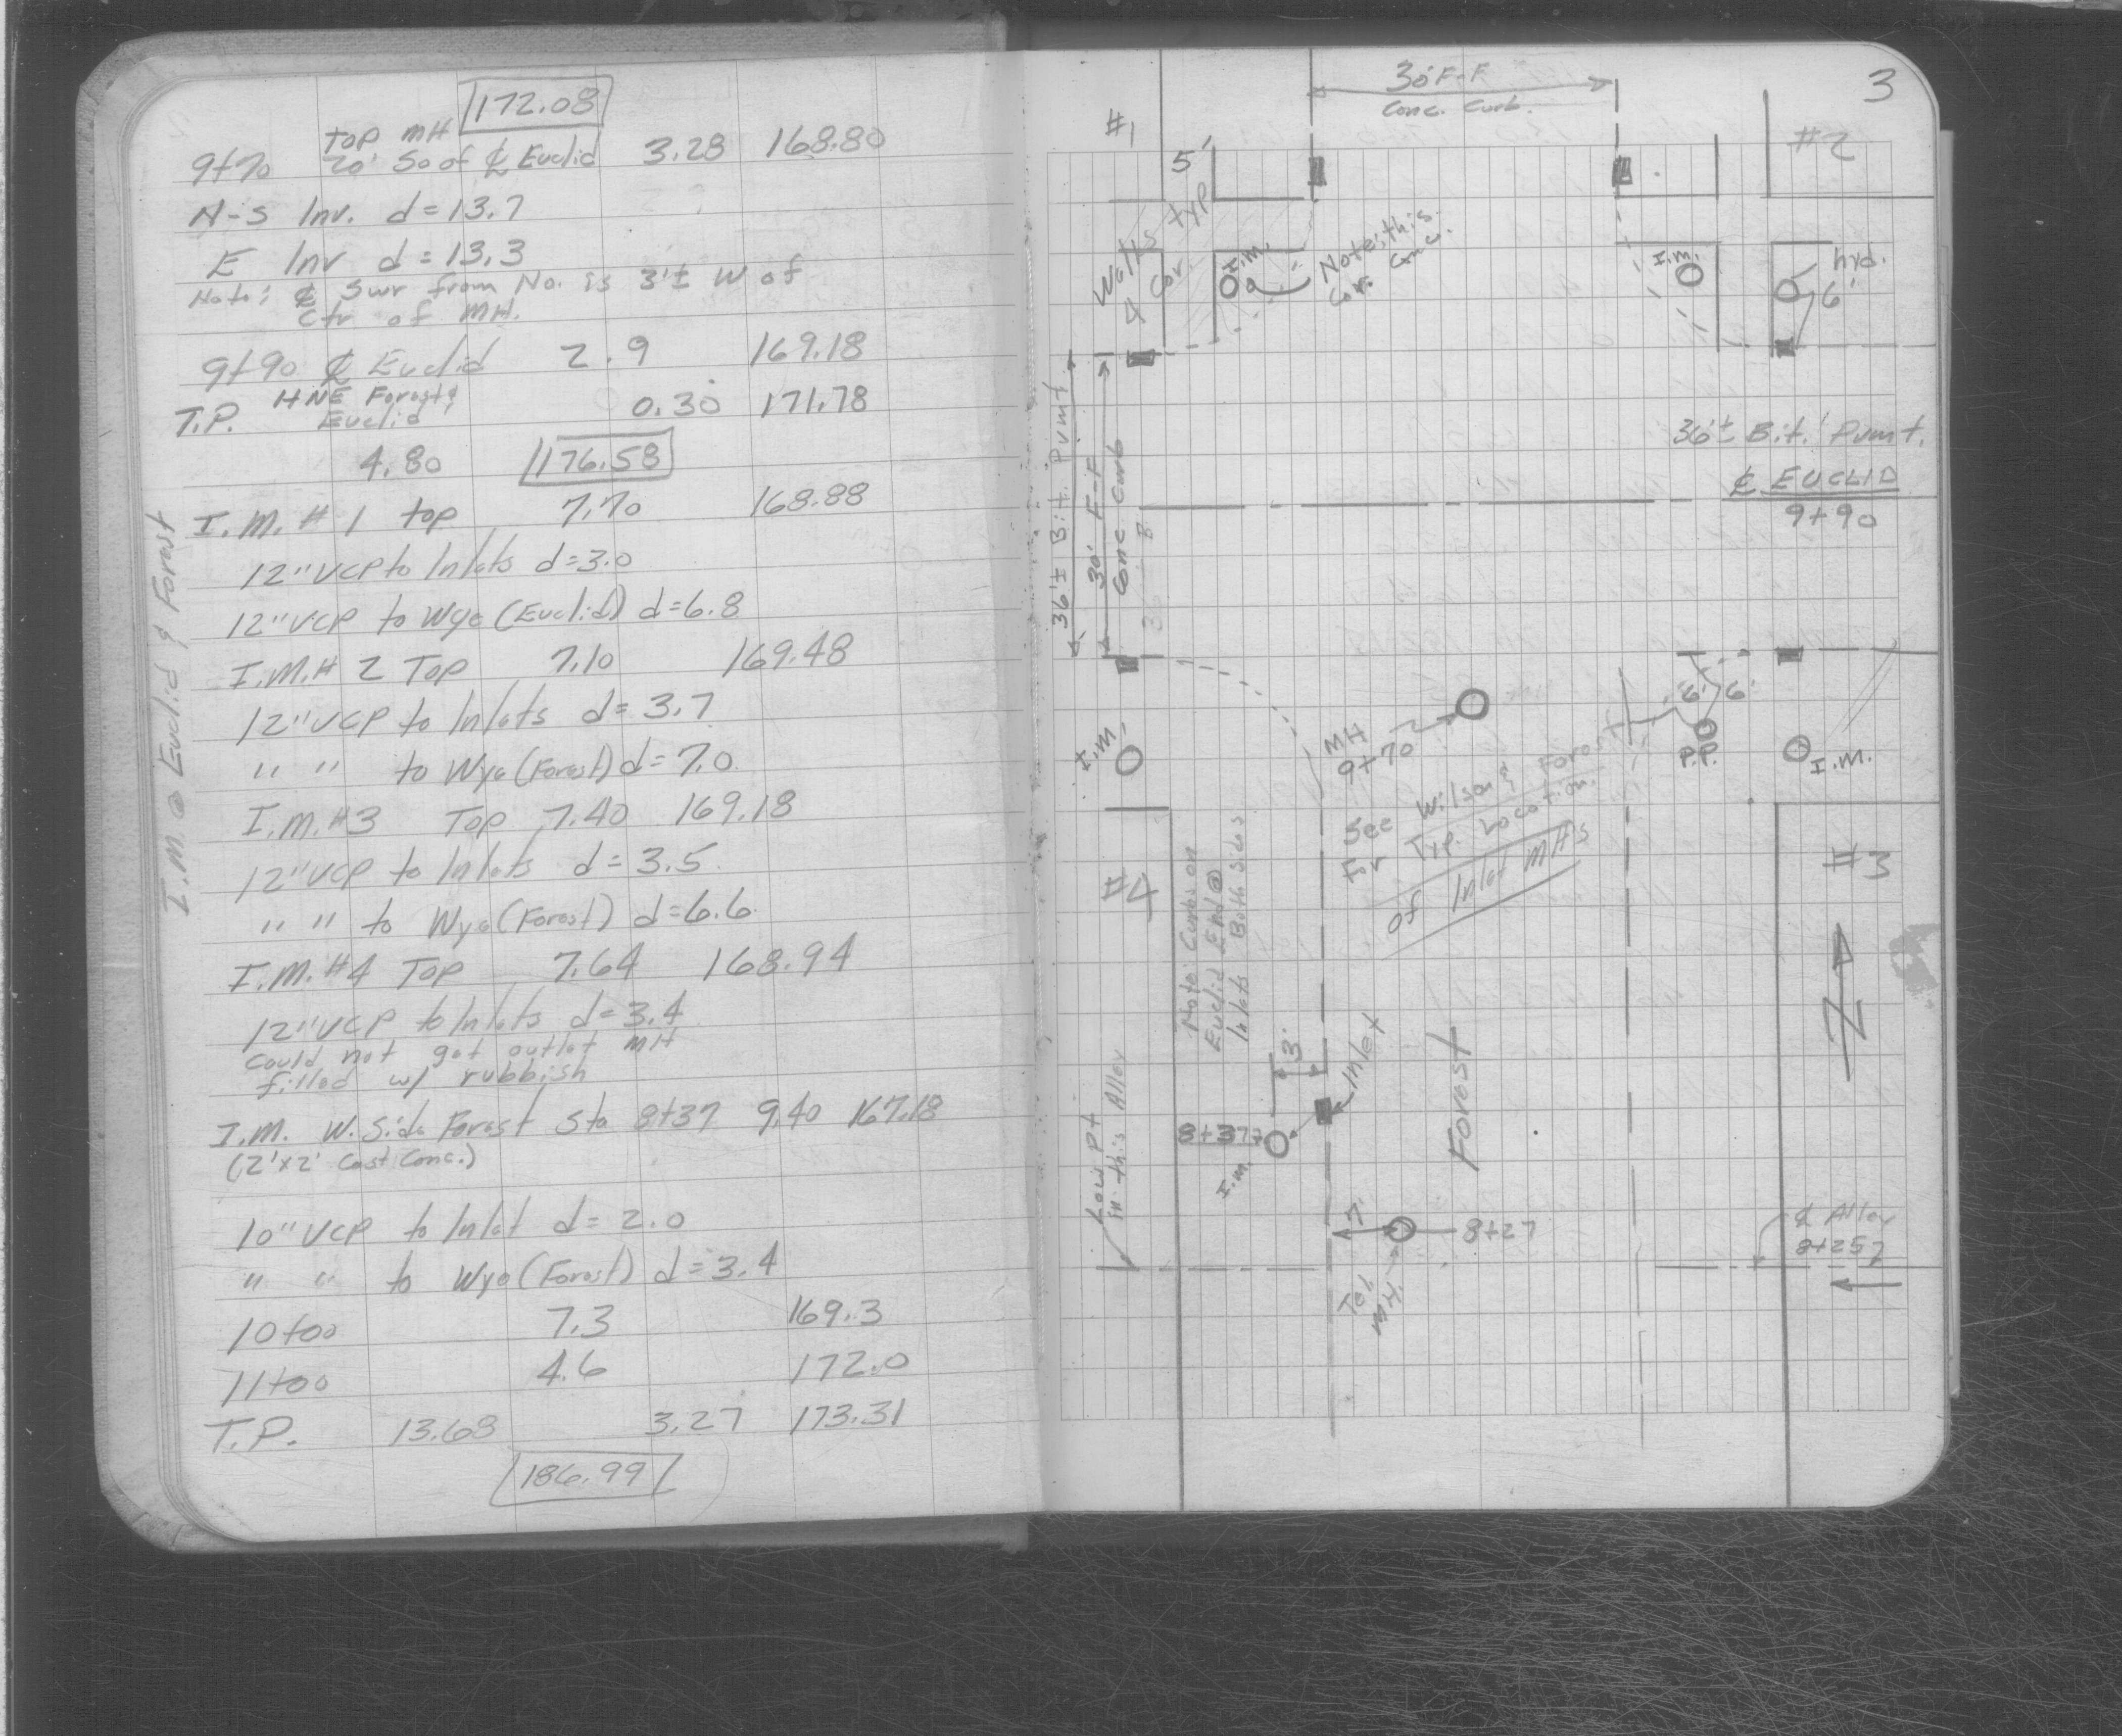 172.08
Top MH
9+70 20' So of ℄ Euclid 3.28 168.80
N-S Inv. d=13.7
E Inv d=13.3
Note: ℄ Swr from No. is 3'± W of
Ctr of MH.
9+90 ℄ Euclid 2.9 169.18
T.P. HNE Forest &
Euclid 0.30 171.78
4.80 176.58
I.M.#1 top 7.70 168.88
12" VCP to Inlets d=3.0
12" VCP to Wye (Euclid) d=6.8
I.M.#2 Top 7.10 169.48
12" VCP to Inlets d=3.7
" " to Wye (Forest) d=7.0
I.M.#3 Top 7.40 169.18
12" VCP to Inlets d=3.5
" " to Wye (Forest) d=6.6
I.M.#4 Top 7.64 168.94
12" VCP to Inlets d=3.4
Could not get outlet MH
filled w/ rubbish
I.M. W. Side Forest Sta 8+37 9.40 167.18
(2'x2' Cast Conc.)
10" VCP to Inlet d=2.0
" " to Wye (Forest) d=3.4
10+00 7.3 169.3
11+00 4.6 172.0
T.P. 13.68 3.27 173.31
186.99
I.M. @ Euclid & Forest
3
30' F-F
Conc. Curb.
#1
#2
5'
Walks typ
4 Cor.
I.M.
Note: this
Cor. Conc.
I.M.
hyd.
6'
36'± Bit. Pvmt
30' F-F
Conc Curb
36'± Bit. Pvmt.
℄ EUCLID
9+90
6' 6'
P.P.
I.M.
I.M.
MH
9+70
See Wilson & Forest
for Typ. Location
of Inlet MHs
#4
#3
Note: Curbs on
Euclid End @
Inlets Both Sides
N
3'
Inlet
Forest
8+37
I.M.
Low Pt
in this Alley
7'
8+27
Tel.
MH.
℄ Alley
8+25